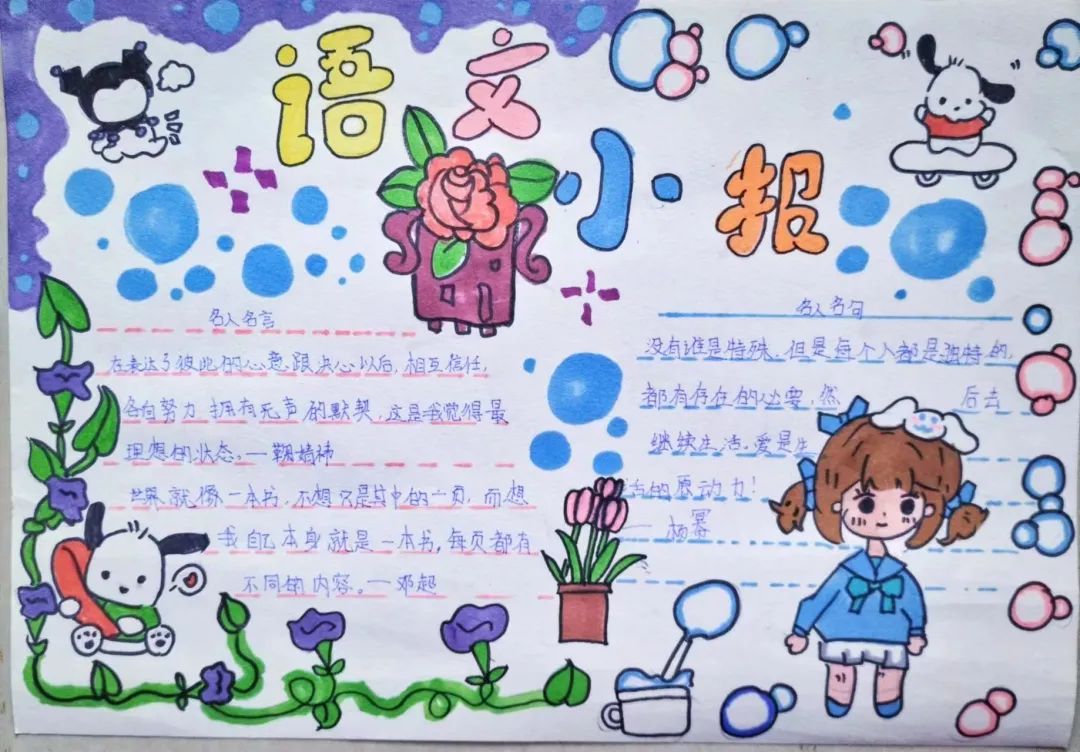 语文
小报
名人名言
在表达了彼此的心意跟决心以后,相互信任,
各自努力 拥有无声的默契,这是我觉得最
理想的状态。一鞠婧祎
世界就像一本书,不想只是其中的一页,而想
我自己本身就是一本书,每页都有
不同的内容。一邓超
名人名句
没有谁是特殊,但是每个人都是独特的,
都有存在的必要,然 后去
继续生活,爱是生
活的原动力!
——杨幂